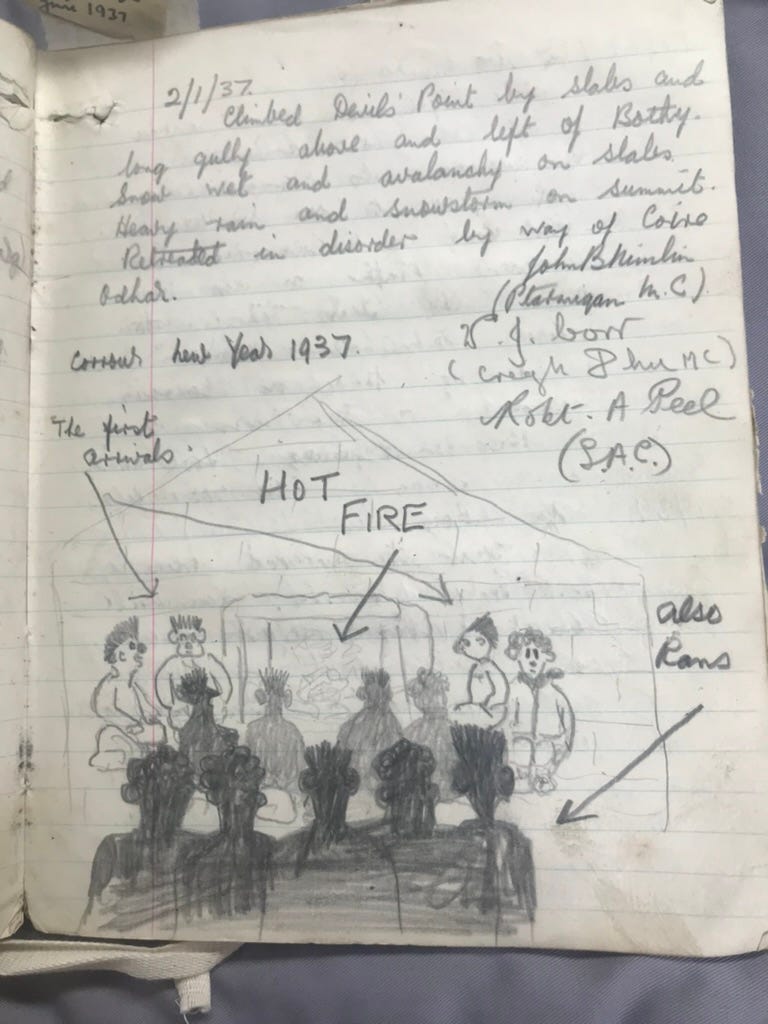 June 1937
2/1/37.
Climbed Devils' Point by slabs and
long gully above and left of Bothy.
Snow wet and avalanchy on slabs.
Heavy rain and snowstorm on summit.
Retreated in disorder by way of Coire
Odhar.
John B Nimlin
(Ptarmigan M.C.)
Corrour New Year 1937.
(Creagh Dhu MC)
Robt. A Peel
(S.A.C.)
The first
arrivals.
HOT
FIRE
also
Rans